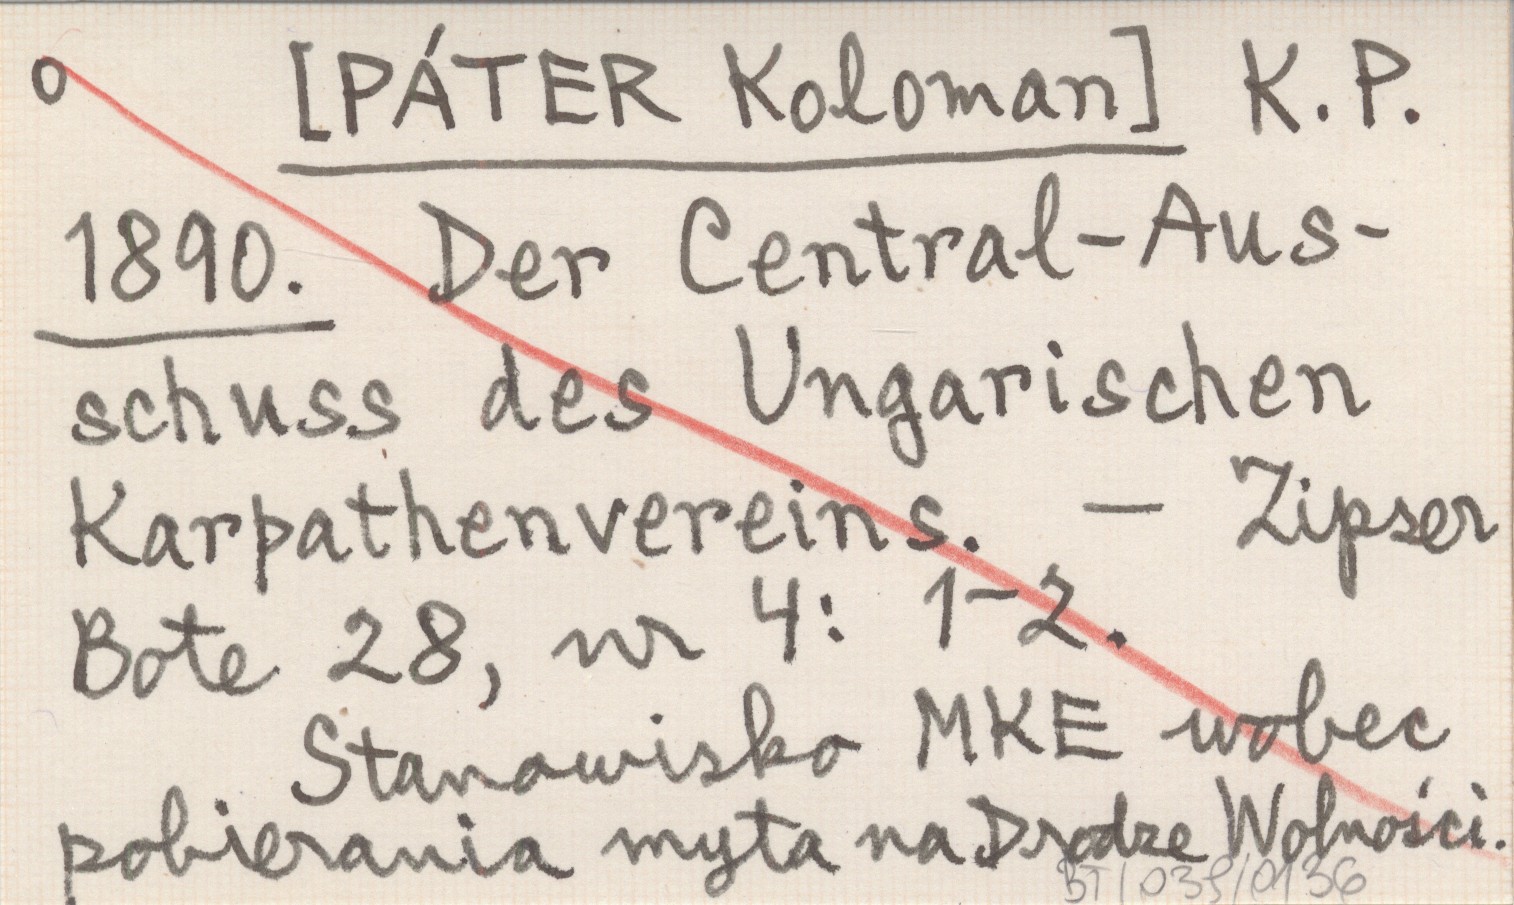 o [PÁTER Koloman] K.P.
1890. Der Central-Aus-
schuss des Ungarischen
Karpathenvereins. — Zipser
Bote 28, nr 4: 1-2.
Stanowisko MKE wobec
pobierania myta na Drodze Wolności.
BT/039/0136